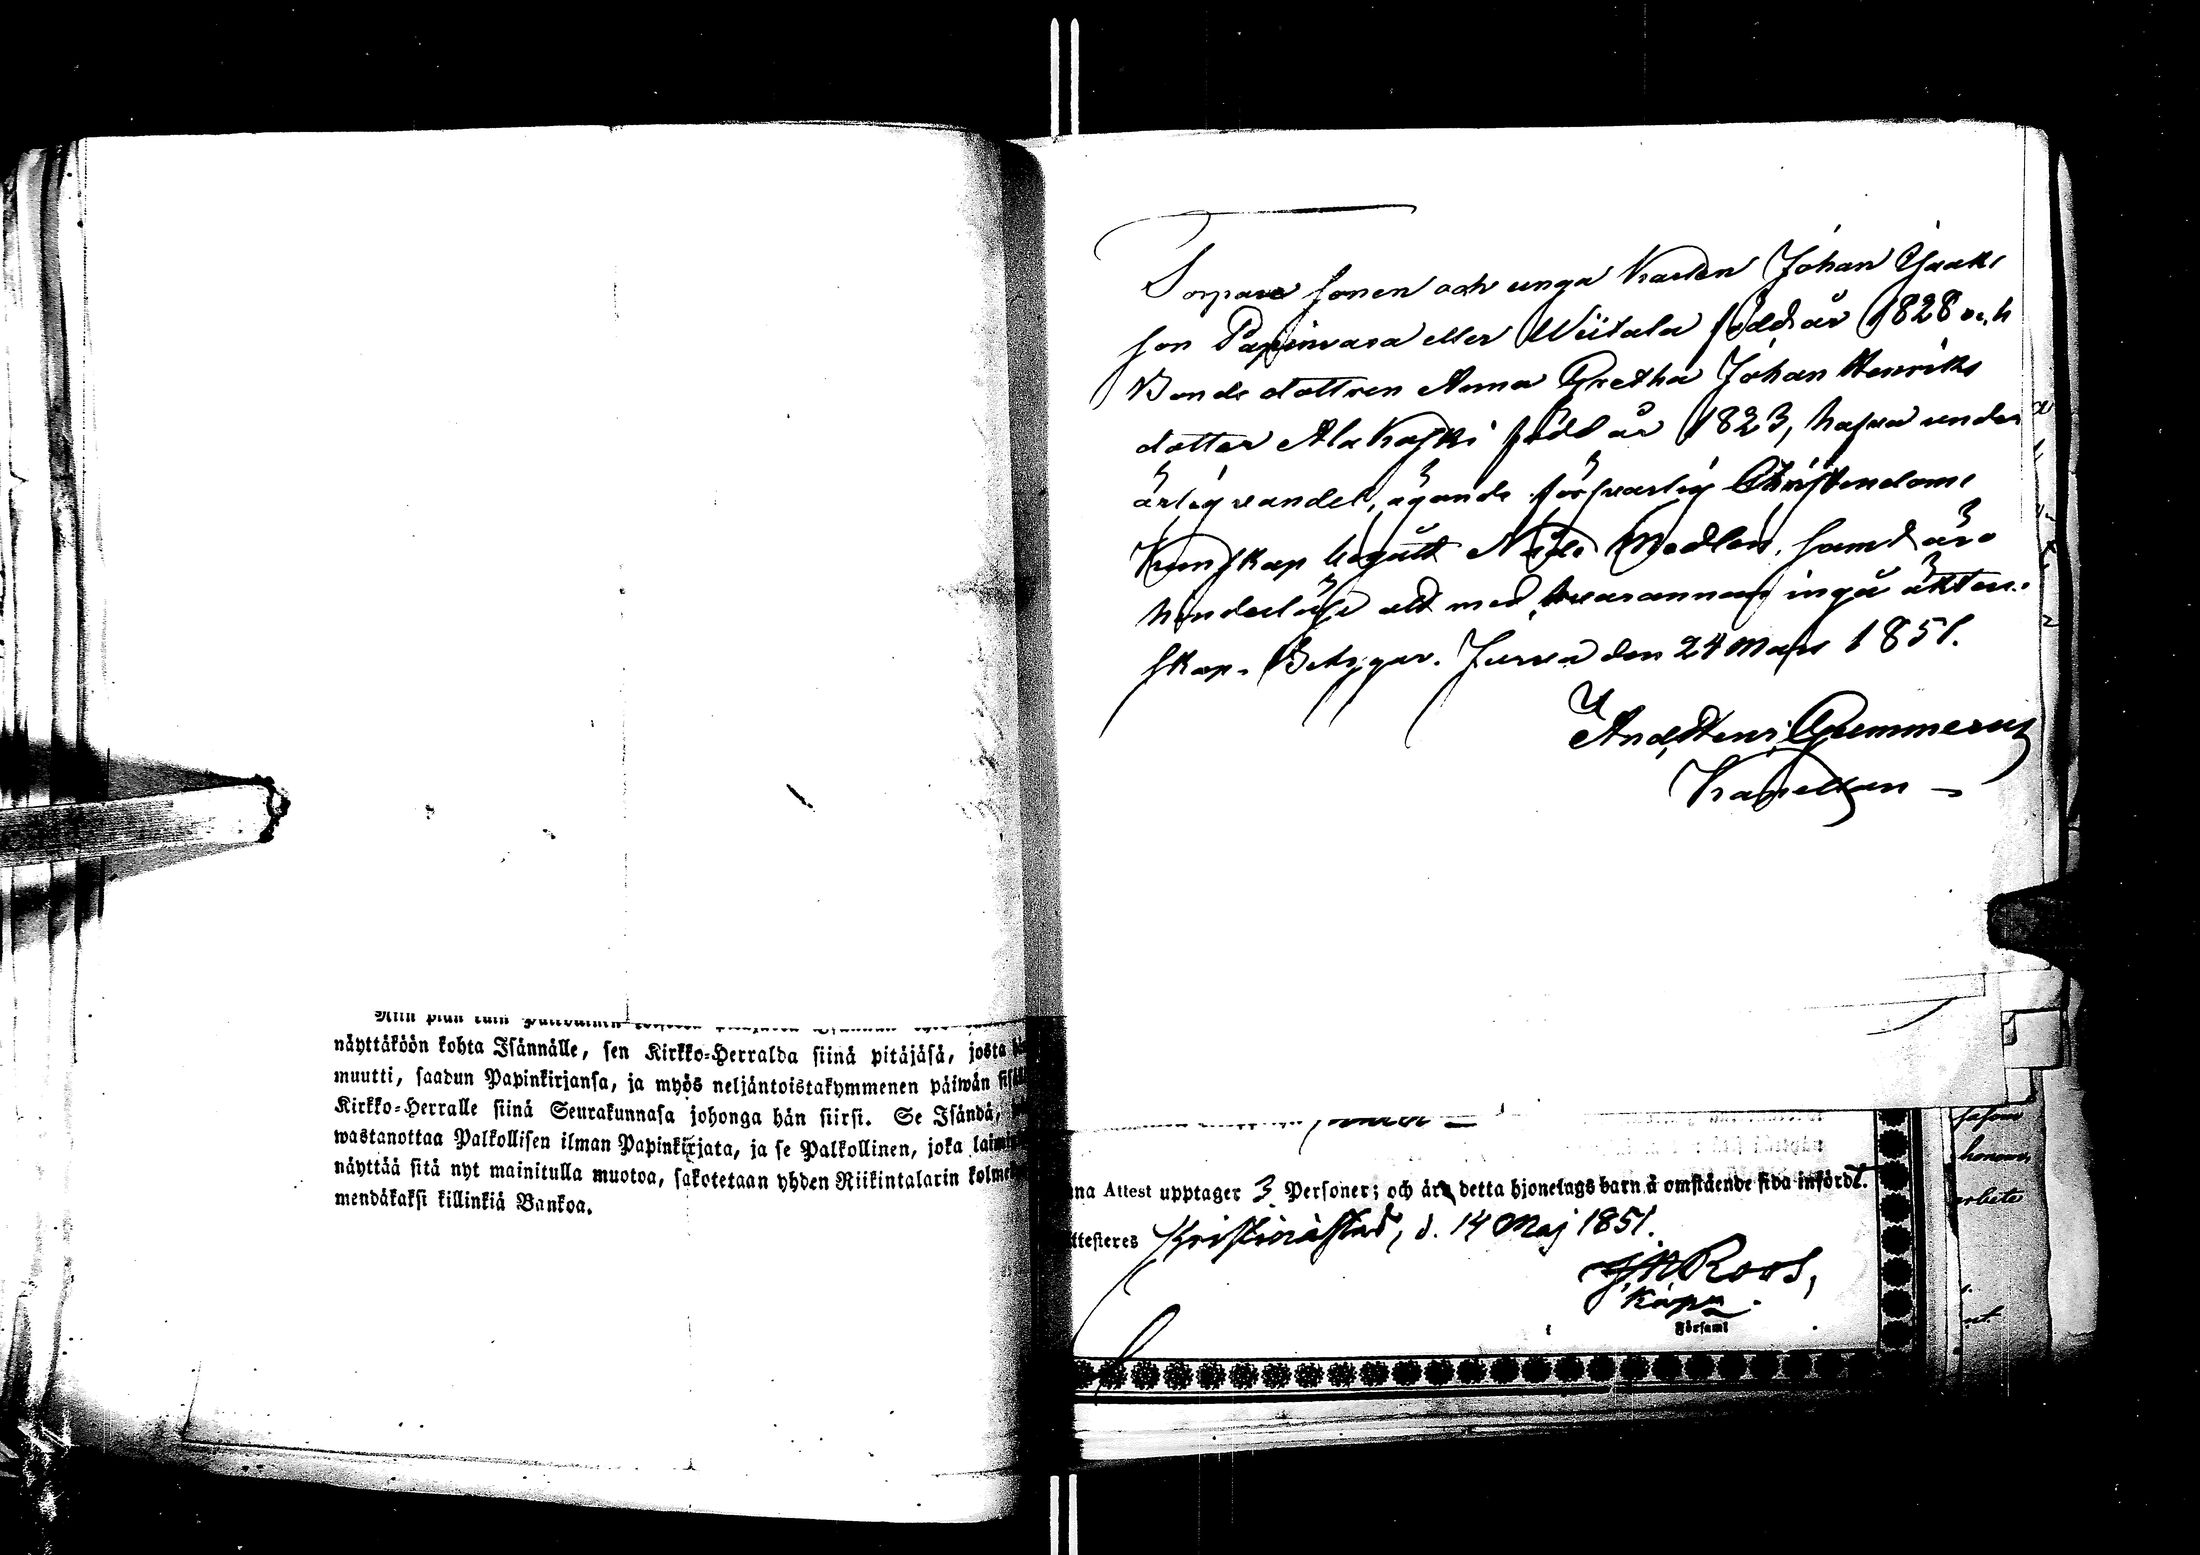 näyttäköön kohta Isännälle, sen Kirkko-Herralda siinä pitäjäsä, josta
muutti, saadun Papinkirjansa, ja myös neljäntoistakymmenen päiwän
Kirkko-Herralle siinä Seurakunnasa johonga hän siirsi. Se Isändä,
wastanottaa Palkollisen ilman Papinkirjata, ja se Palkollinen, joka
näyttää sitä nyt mainitulla muotoa, sakotetaan yhden Riikintalarin
mendäkaksi killinkiä Bankoa.
Torpare sonen och unga Karlen Johan Isaaks
son Papinvasa eller Wiitala född år 1828 och
Bonde dottren Anna Gretha Johan Henriks
dotter Ala Koski född år 1823, hafva under
ärlig vandel, ägande försvarlig Christendoms
Kunskap begått Nåde Medlen, samt äro
hinderlöse att med hvarannan ingå äkten-
skap. Betygar. Jurva den 24 Mars 1851.
And. Henr. Gummerus
Kapellan
Attest upptager 3 Personer; och är detta hjonelags barn å omstående sida infördt.
Attesteres Kristinæstad, d. 14 Maj 1851.
J. M. Roos,
Kapn.
Församl